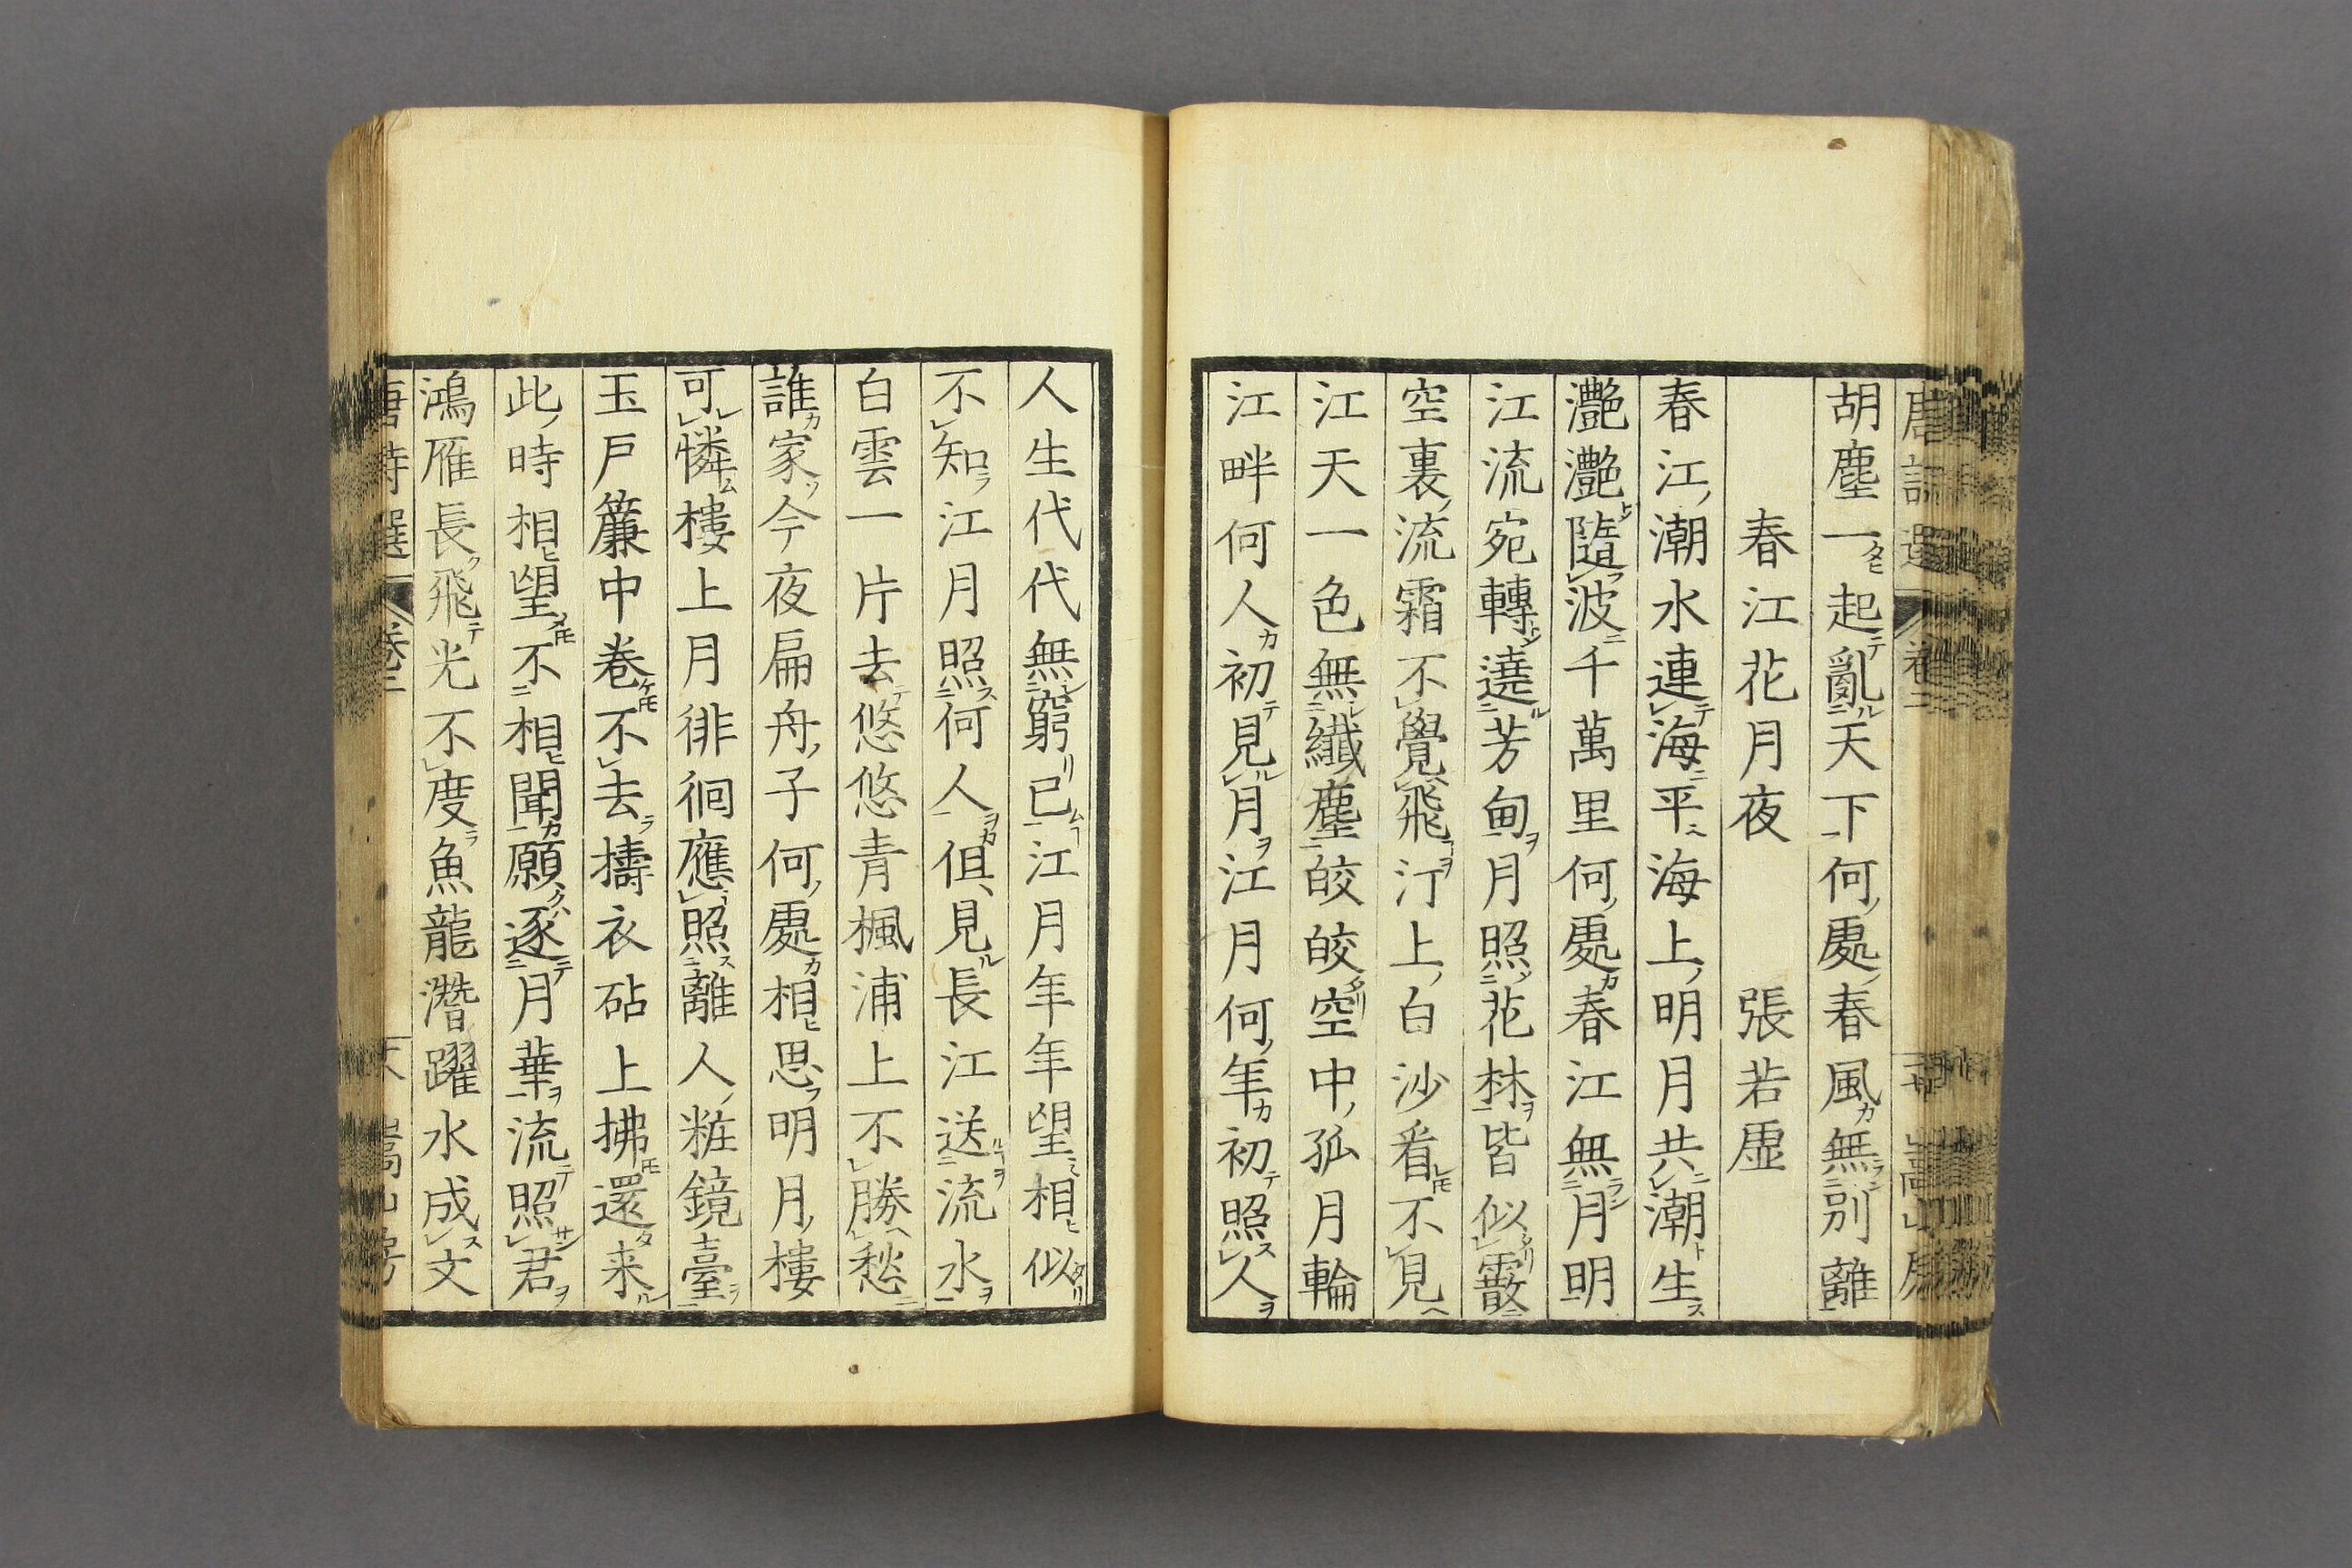 唐詩選 卷二 嵩山房
胡塵一起亂天下何處春風無別離
春江花月夜 張若虛
春江潮水連海平海上明月共潮生
灔灔隨波千萬里何處春江無月明
江流宛轉遶芳甸月照花林皆似霰
空裏流霜不覺飛汀上白沙看不見
江天一色無纖塵皎皎空中孤月輪
江畔何人初見月江月何年初照人
人生代代無窮已江月年年望相似
不知江月照何人但見長江送流水
白雲一片去悠悠青楓浦上不勝愁
誰家今夜扁舟子何處相思明月樓
可憐樓上月徘徊應照離人粧鏡臺
玉戶簾中卷不去擣衣砧上拂還来
此時相望不相聞願逐月華流照君
鴻雁長飛光不度魚龍潛躍水成文
唐詩選 卷二